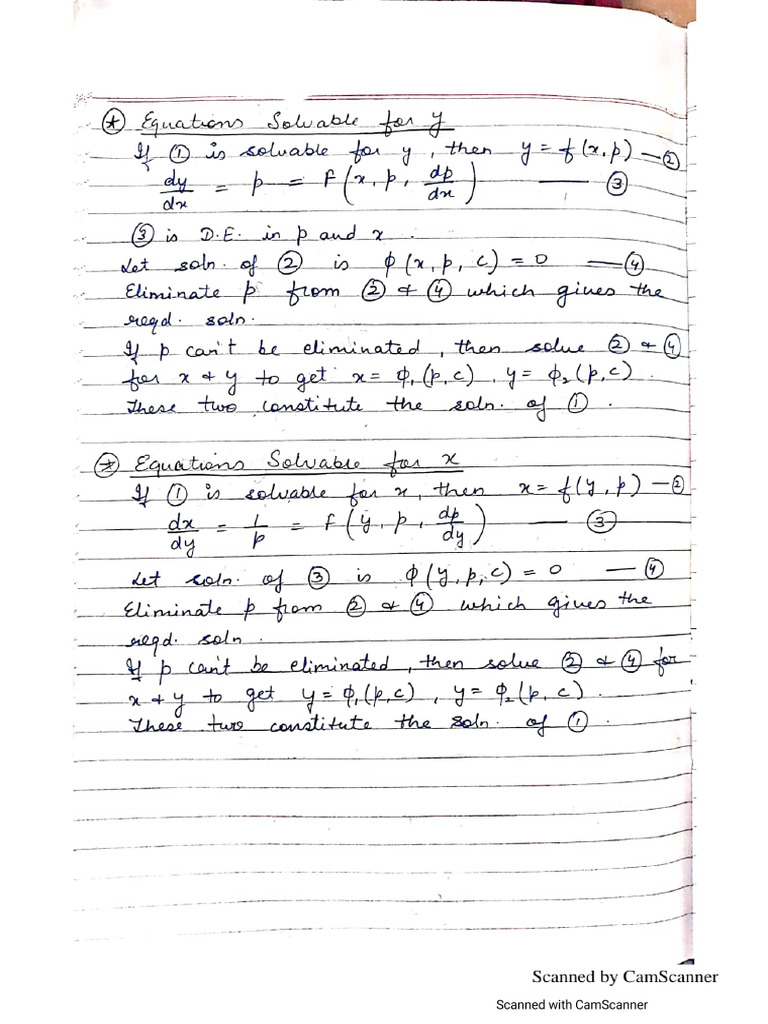 ⊛ Equations Solvable for y
If ① is solvable for y, then y = f(x, p) — ②
dy/dx = p = F(x, p, dp/dx) — ③
③ is D.E. in p and x.
Let soln. of ② is φ(x, p, c) = 0 — ④
Eliminate p from ② & ④ which gives the
reqd. soln.
If p can't be eliminated, then solve ② & ④
for x & y to get x = φ₁(p, c), y = φ₂(p, c).
These two constitute the soln. of ①.
⊛ Equations Solvable for x
If ① is solvable for x, then x = f(y, p) — ②
dx/dy = 1/p = F(y, p, dp/dy) — ③
Let soln. of ③ is φ(y, p, c) = 0 — ④
Eliminate p from ② & ④ which gives the
reqd. soln.
If p can't be eliminated, then solve ② & ④ for
x & y to get y = φ₁(p, c), y = φ₂(p, c).
These two constitute the soln. of ①.
Scanned by CamScanner
Scanned with CamScanner